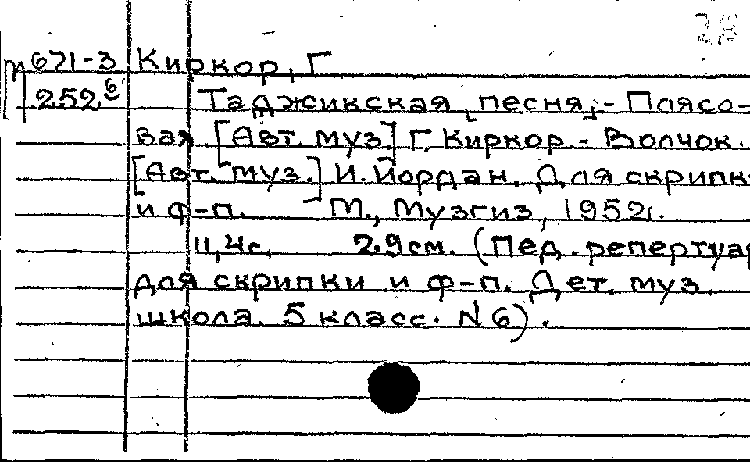 28
П671-3 Киркор, Г
252б Таджикская песня; - Плясо-
вая [Авт. муз.] Г. Киркор. - Волчок.
[Авт. муз.] И. Йордан. Для скрипк
и ф-п. М., Музгиз, 1952г.
11,4с. 29см. (Пед. репертуар
для скрипки и ф-п. Дет. муз.
школа. 5 класс. №6).